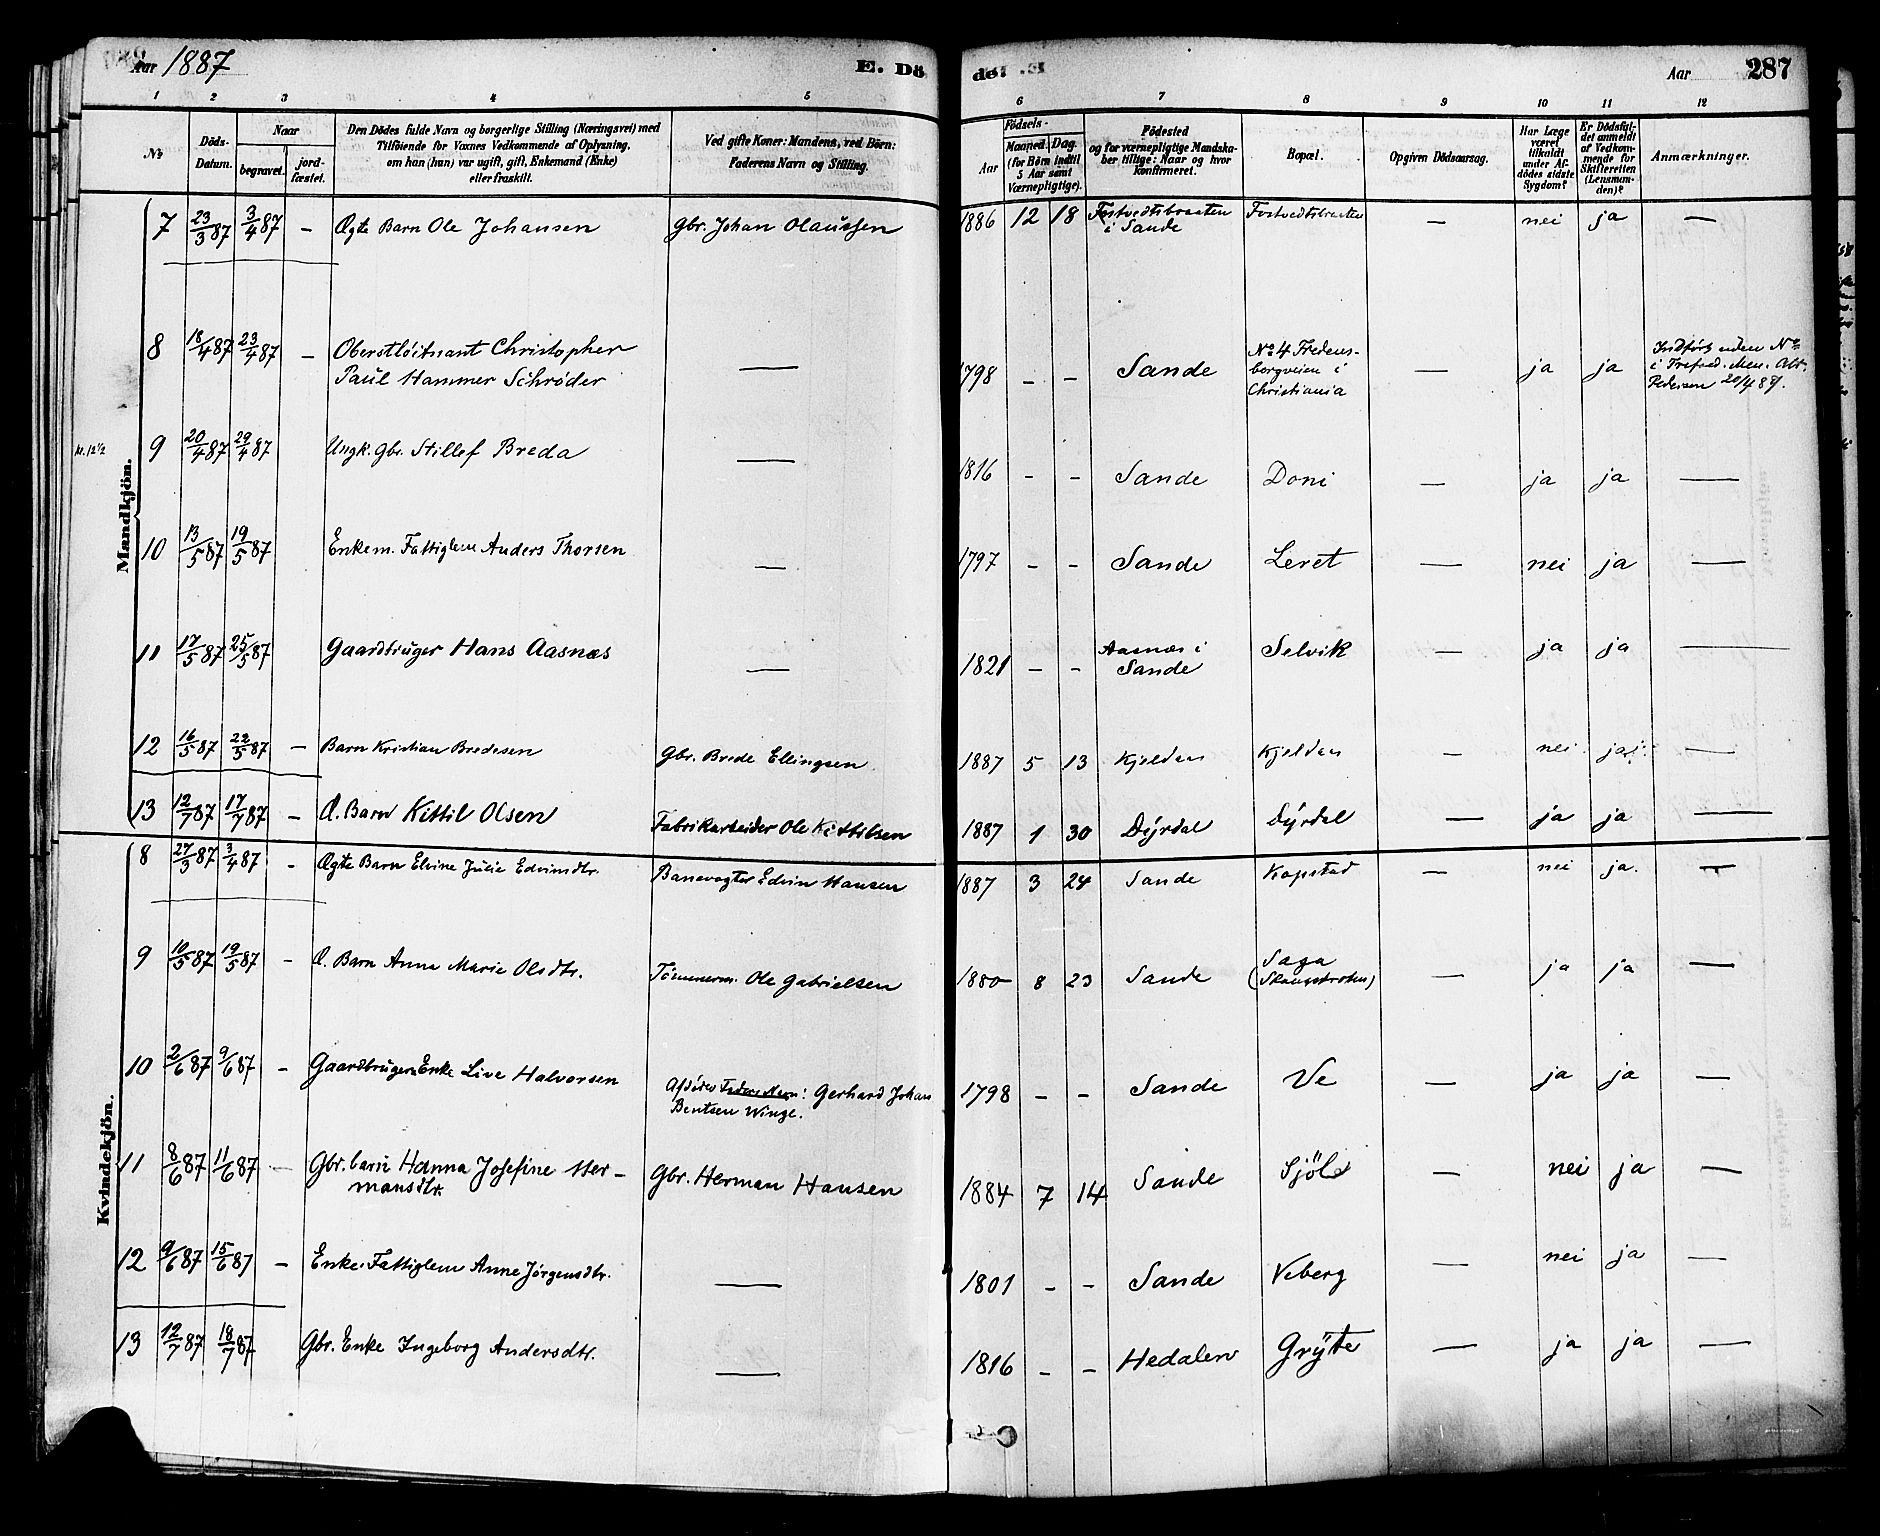 Aar 1887 E. Dö
de. Aar 287
1 2 3 4 5 6 7 8 9 10 11 12
No
Döds-Datum.
Naar
begravet.
jord-fæstet.
Den Dödes fulde Navn og borgerlige Stilling (Næringsvei) med
Tilföiende for Voxnes Vedkommende af Oplysning,
om han (hun) var ugift, gift, Enkemand (Enke)
eller fraskilt.
Ved gifte Koner: Mandens, ved Börn:
Faderens Navn og Stilling.
Födsels-
Aar
Maaned. Dag.
(for Börn indtil
5 Aar samt
Værnepligtige).
Födested
og for værnepligtige Mandska-
ber tillige: Naar og hvor
konfirmeret.
Bopæl.
Opgiven Dödsaarsag.
Har Læge
været
tilkaldt
under Af-
dödes sidste
Sygdom?
Er Dödsfal-
det anmeldt
af Vedkom-
mende for
Skifteretten
(Lensman-
den)?
Anmærkninger.
Mandkjön.
7 23/3 87 3/4 87 — Ægte Barn Ole Johansen Gbr. Johan Olaussen 1886 12 18 Fostvedtsbraaten i Sande Fostvedtsbraaten — nei ja —
8 18/4 87 23/4 87 — Oberstlöitnant Christopher Paul Hammer Schrøder — 1798 - - Sande No 4 Fredensborgveien i Christiania — ja ja Indført uden No i 20/4 87.
9 20/4 87 29/4 87 Ungk. Gbr. Stillef Breda — 1816 - - Sande Doni — ja ja —
10 13/5 87 19/5 87 Enkem. Fattiglem Anders Thorsen — 1797 - - Sande Leret — nei ja —
11 17/5 87 25/5 87 Gaardbruger Hans Aasnæs — 1821 - - Aasnæs i Sande Selvik — ja ja —
12 16/5 87 22/5 87 — Barn Kristian Bredesen Gbr. Brede Ellingsen 1887 5 13 Kjeldaas Kjeldaas — nei ja —
13 12/7 87 17/7 87 — Æ. Barn Kittil Olsen Fabrikarbeider Ole Kittilsen 1887 1 30 Dýrdal Dýrdal — ja ja —
Kvindekjön.
8 27/3 87 3/4 87 - Ægte Barn Elvine Julie Edvinsdtr. Banevogter Edvin Hansen 1887 3 24 Sande Kopstad — nei ja. —
9 10/5 87 19/5 87 - Æ. Barn Anna Marie Olsdtr. Tömmerm. Ole Gabrielsen 1880 8 23 Sande Saga — ja ja —
10 2/6 87 9/6 87 - Gaardbruger Enke Live Halvorsen Afdödes Faders Navn: Gerhard Johan Bentsen Winge. 1798 - - Sande Ve — ja ja —
11 8/6 87 11/6 87 — Gbr. barn Hanna Josefine Hermansdtr. Gbr. Herman Hansen 1884 7 14 Sande Sjöl — nei ja —
12 9/6 87 15/6 87 — Enke. Fattiglem Anne Jörgensdtr. — 1801 - - Sande Veberg — nei ja —
13 12/7 87 18/7 87 Gbr. Enke Ingeborg Andersdtr. — 1816 - - Hedalen Grýte — ja ja —